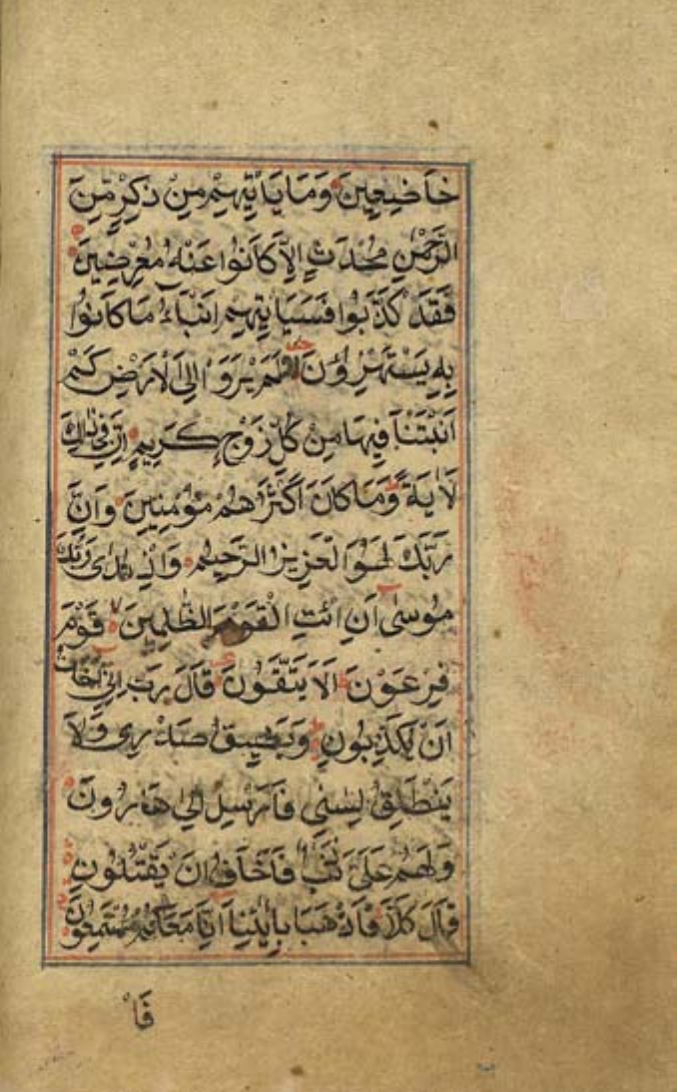 خَاضِعِينَ وَمَا يَأْتِيهِمْ مِنْ ذِكْرٍ مِنَ
الرَّحْمٰنِ مُحْدَثٍ اِلَّا كَانُوا عَنْهُ مُعْرِضِينَ
فَقَدْ كَذَّبُوا فَسَيَأْتِيهِمْ اَنْبَاءُ مَا كَانُوا
بِهِ يَسْتَهْزِؤُنَ اَوَلَمْ يَرَوْا اِلَى الْاَرْضِ كَمْ
اَنْبَتْنَا فِيهَا مِنْ كُلِّ زَوْجٍ كَرِيمٍ اِنَّ فِي ذٰلِكَ
لَاٰيَةً وَمَا كَانَ اَكْثَرُهُمْ مُؤْمِنِينَ وَاِنَّ
رَبَّكَ لَهُوَ الْعَزِيزُ الرَّحِيمُ وَاِذْ نَادٰى رَبُّكَ
مُوسٰى اَنِ ائْتِ الْقَوْمَ الظّٰلِمِينَ قَوْمَ
فِرْعَوْنَ اَلَا يَتَّقُونَ قَالَ رَبِّ اِنِّي اَخَافُ
اَنْ يُكَذِّبُونِ وَيَضِيقُ صَدْرِي وَلَا
يَنْطَلِقُ لِسٰنِي فَاَرْسِلْ اِلٰى هَارُونَ
وَلَهُمْ عَلَيَّ ذَنْبٌ فَاَخَافُ اَنْ يَقْتُلُونِ
قَالَ كَلَّا فَاذْهَبَا بِاٰيٰتِنَا اِنَّا مَعَكُمْ مُسْتَمِعُونَ
فَأْ